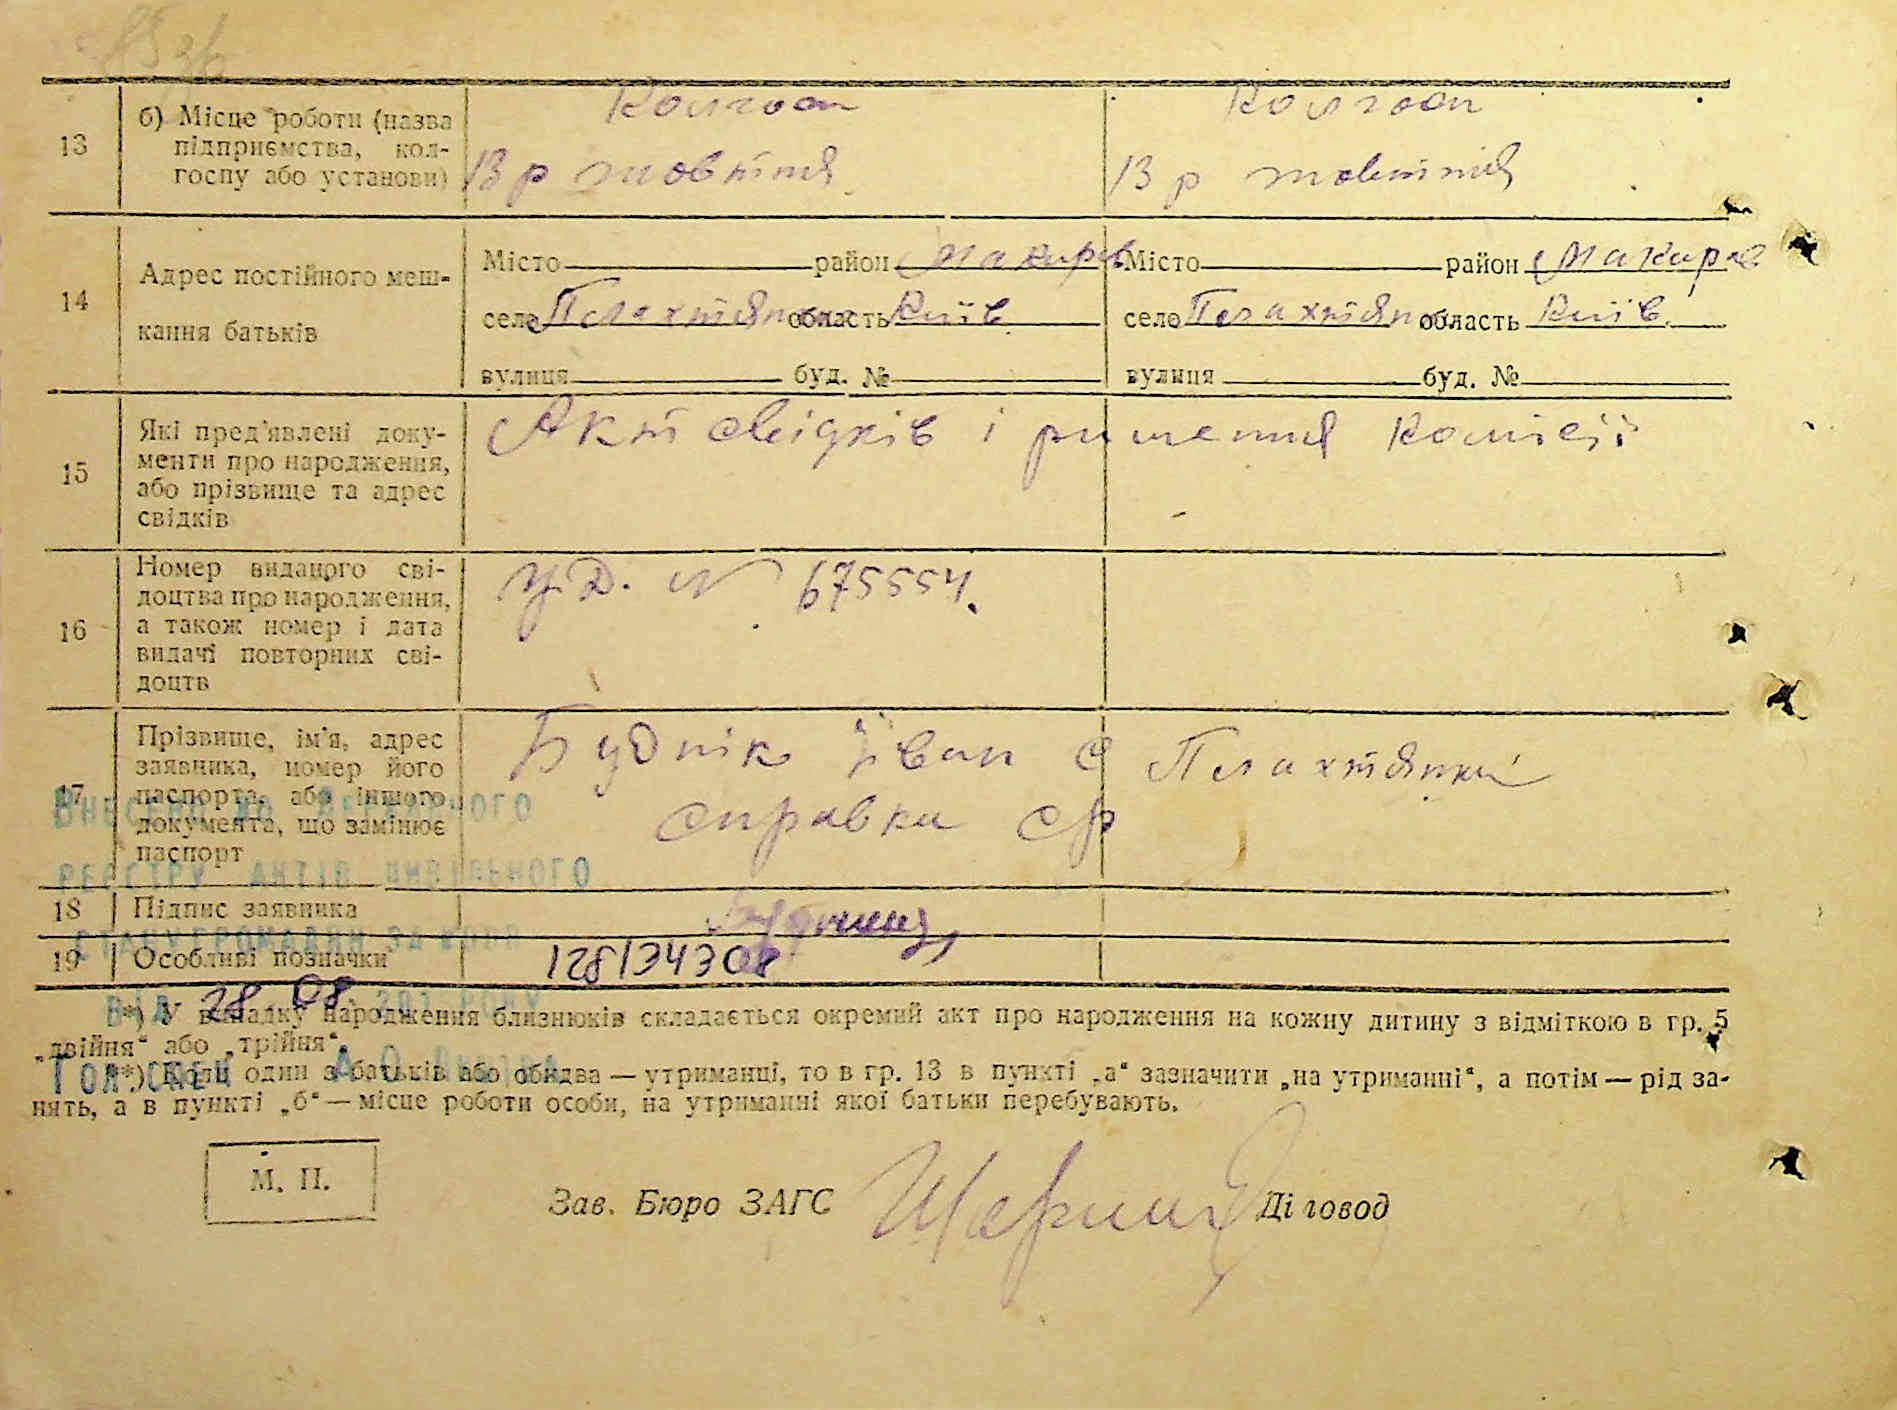 13
б) Місце роботи (назва
підприємства, кол-
госпу або установи)
Колгосп
13 р жовтня
Колгосп
13 р жовтня
14
Адрес постійного меш-
кання батьків
Місто район Макарів
село Плахтянка область Київ
вулиця буд. №
Місто район Макарів
село Плахтянка область Київ.
вулиця буд. №
15
Які пред'явлені доку-
менти про народження,
або прізвище та адрес
свідків
Акт свідків і ришення Комісії
16
Номер виданого сві-
доцтва про народження,
а також номер і дата
видачі повторних сві-
доцтв
УД. № 675554.
17
Прізвище, ім'я, адрес
заявника, номер його
паспорта, або іншого
документа, що замінює
паспорт
Буднік Іван с Плахтянки
справка ср
ВНЕСЕНО ДО ДЕРЖАВНОГО
РЕЄСТРУ АКТІВ ЦИВІЛЬНОГО
СТАНУ ГРОМАДЯН ЗА
18
Підпис заявника
19
Особливі позначки
128134308
ВІД 28 08 201 РОКУ
*) У випадку народження близнюків складається окремий акт про народження на кожну дитину з відміткою в гр. 5
„двійня“ або „трійня“.
Гол.спец
**) Коли один з батьків або обидва — утриманці, то в гр. 13 в пункті „а“ зазначити „на утриманні“, а потім — рід за-
нять, а в пункті „б“ — місце роботи особи, на утриманні якої батьки перебувають.
М. П.
Зав. Бюро ЗАГС
Діловод